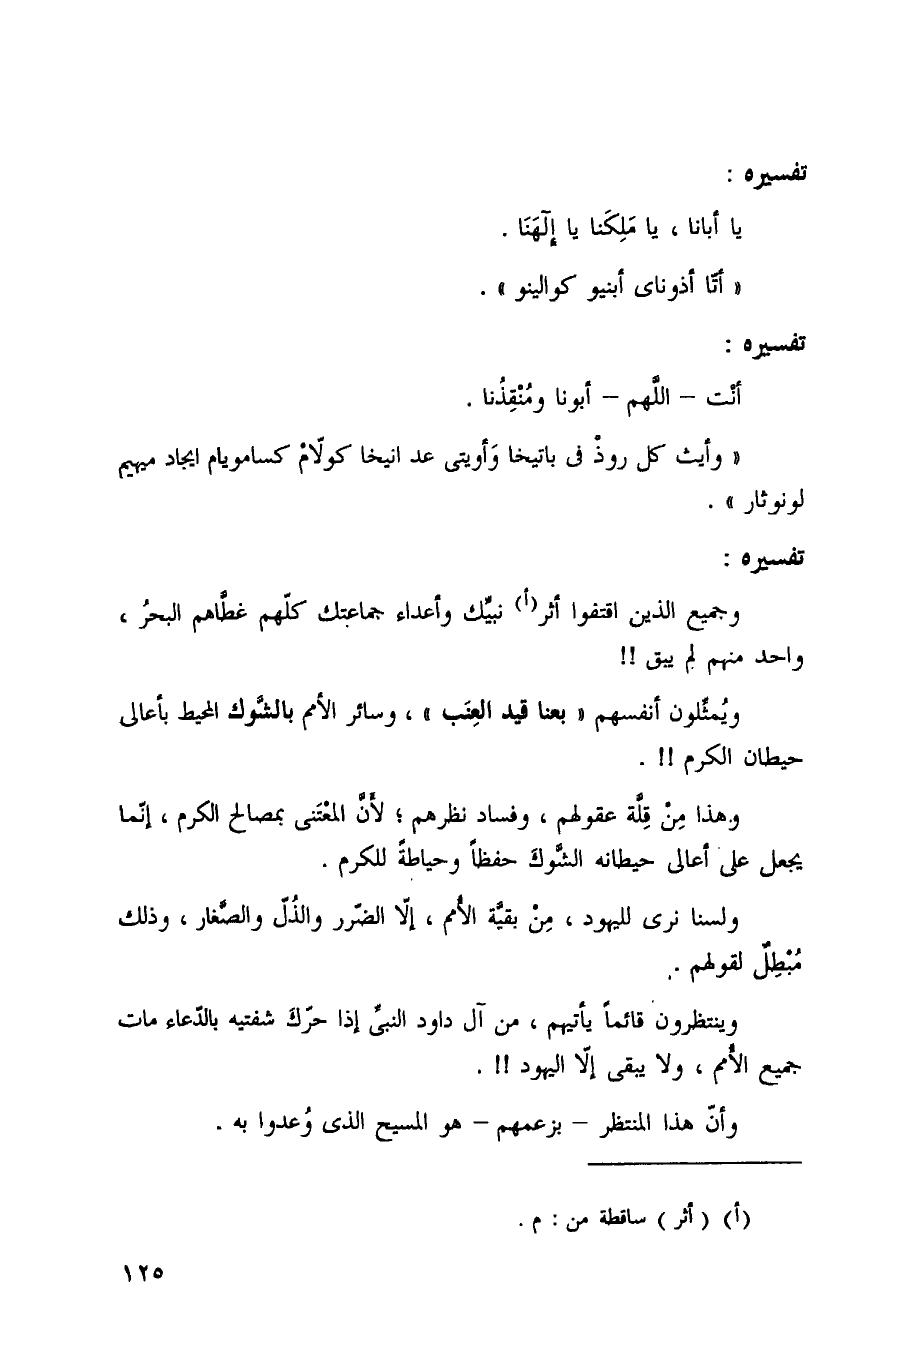 تفسيره :
يا أبانا ، يا مَلِكَنا يا إِلَهَنَا .
« أتّا أذوناى أبنيو كوالينو » .
تفسيره :
أنْت – اللَّهم – أبونا ومُنْقِذُنا .
« وأيث كل روذْ فى باتيخا وَأويتى عد انيخا كولّامْ كسامويام ايجاد ميهيم
لونوثار » .
تفسيره :
وجميع الذين اقتفوا أثر(أ) نبيِّك وأعداء جماعتك كلّهم غطَّاهم البحرُ ،
واحد منهم لم يبق !!
ويُمثِّلون أنفسهم « بعنا قيد العِنَب » ، وسائر الأمم بالشَّوك المحيط بأعالى
حيطان الكرم !! .
وهذا مِنْ قِلَّة عقولهم ، وفساد نظرهم ؛ لأَنَّ المعْتَنى بمصالح الكرم ، إنّما
يجعل على أعالى حيطانه الشَّوكَ حفظاً وحياطةً للكرم .
ولسنا نرى لليهود ، مِنْ بقيَّة الأُمم ، إلّا الضّرر والذُلّ والصَّغار ، وذلك
مُبْطِلٌ لقولهم .
وينتظرون قائماً يأتيهم ، من آل داود النبىِّ إذا حرّكَ شفتيه بالدّعاء مات
جميع الأُمم ، ولا يبقى إلّا اليهود !! .
وأنّ هذا المنتظر – بزعمهم – هو المسيح الذى وُعدوا به .
(أ) ( أثر ) ساقطة من : م .
١٢٥